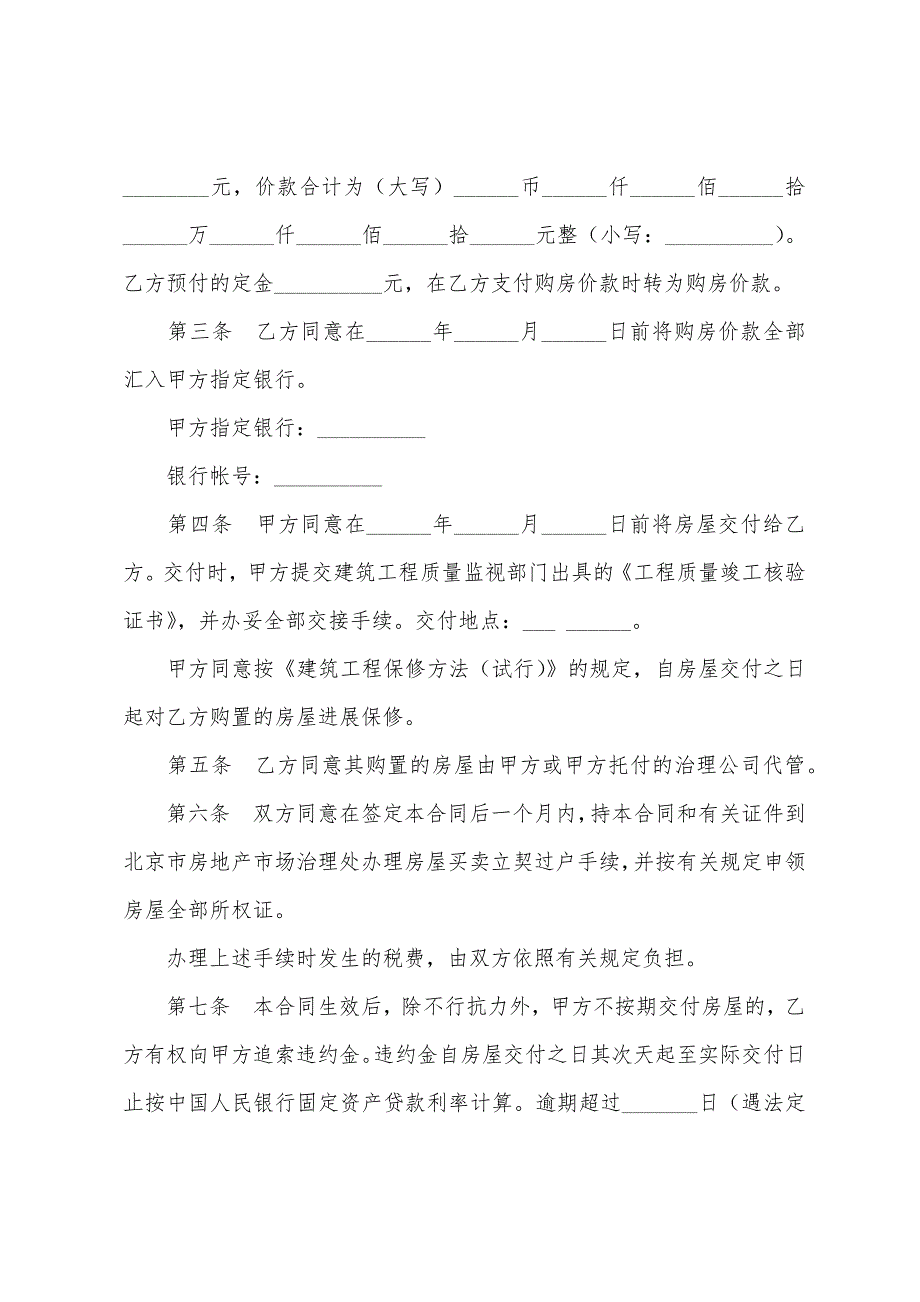 ________元，价款合计为（大写）______币______仟______佰______拾
______万______仟______佰______拾______元整（小写：__________）。
乙方预付的定金__________元，在乙方支付购房价款时转为购房价款。
第三条　乙方同意在______年______月______日前将购房价款全部
汇入甲方指定银行。
甲方指定银行：__________
银行帐号：__________
第四条　甲方同意在______年______月______日前将房屋交付给乙
方。交付时，甲方提交建筑工程质量监视部门出具的《工程质量竣工核验
证书》，并办妥全部交接手续。交付地点：___ ______。
甲方同意按《建筑工程保修方法（试行）》的规定，自房屋交付之日
起对乙方购置的房屋进展保修。
第五条　乙方同意其购置的房屋由甲方或甲方托付的治理公司代管。
第六条　双方同意在签定本合同后一个月内，持本合同和有关证件到
北京市房地产市场治理处办理房屋买卖立契过户手续，并按有关规定申领
房屋全部所权证。
办理上述手续时发生的税费，由双方依照有关规定负担。
第七条　本合同生效后，除不行抗力外，甲方不按期交付房屋的，乙
方有权向甲方追索违约金。违约金自房屋交付之日其次天起至实际交付日
止按中国人民银行固定资产贷款利率计算。逾期超过_______日（遇法定